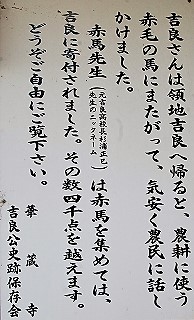 吉良さんは領地吉良へ帰ると、農耕に使う
赤毛の馬にまたがって、気安く農民に話し
かけました。
赤馬先生(元吉良高校長杉浦正巳先生のニックネーム)は赤馬を集めては、
吉良に寄付されました。その数四千点を越えます。
どうぞご自由にご覧下さい。
華蔵寺
吉良公史跡保存会